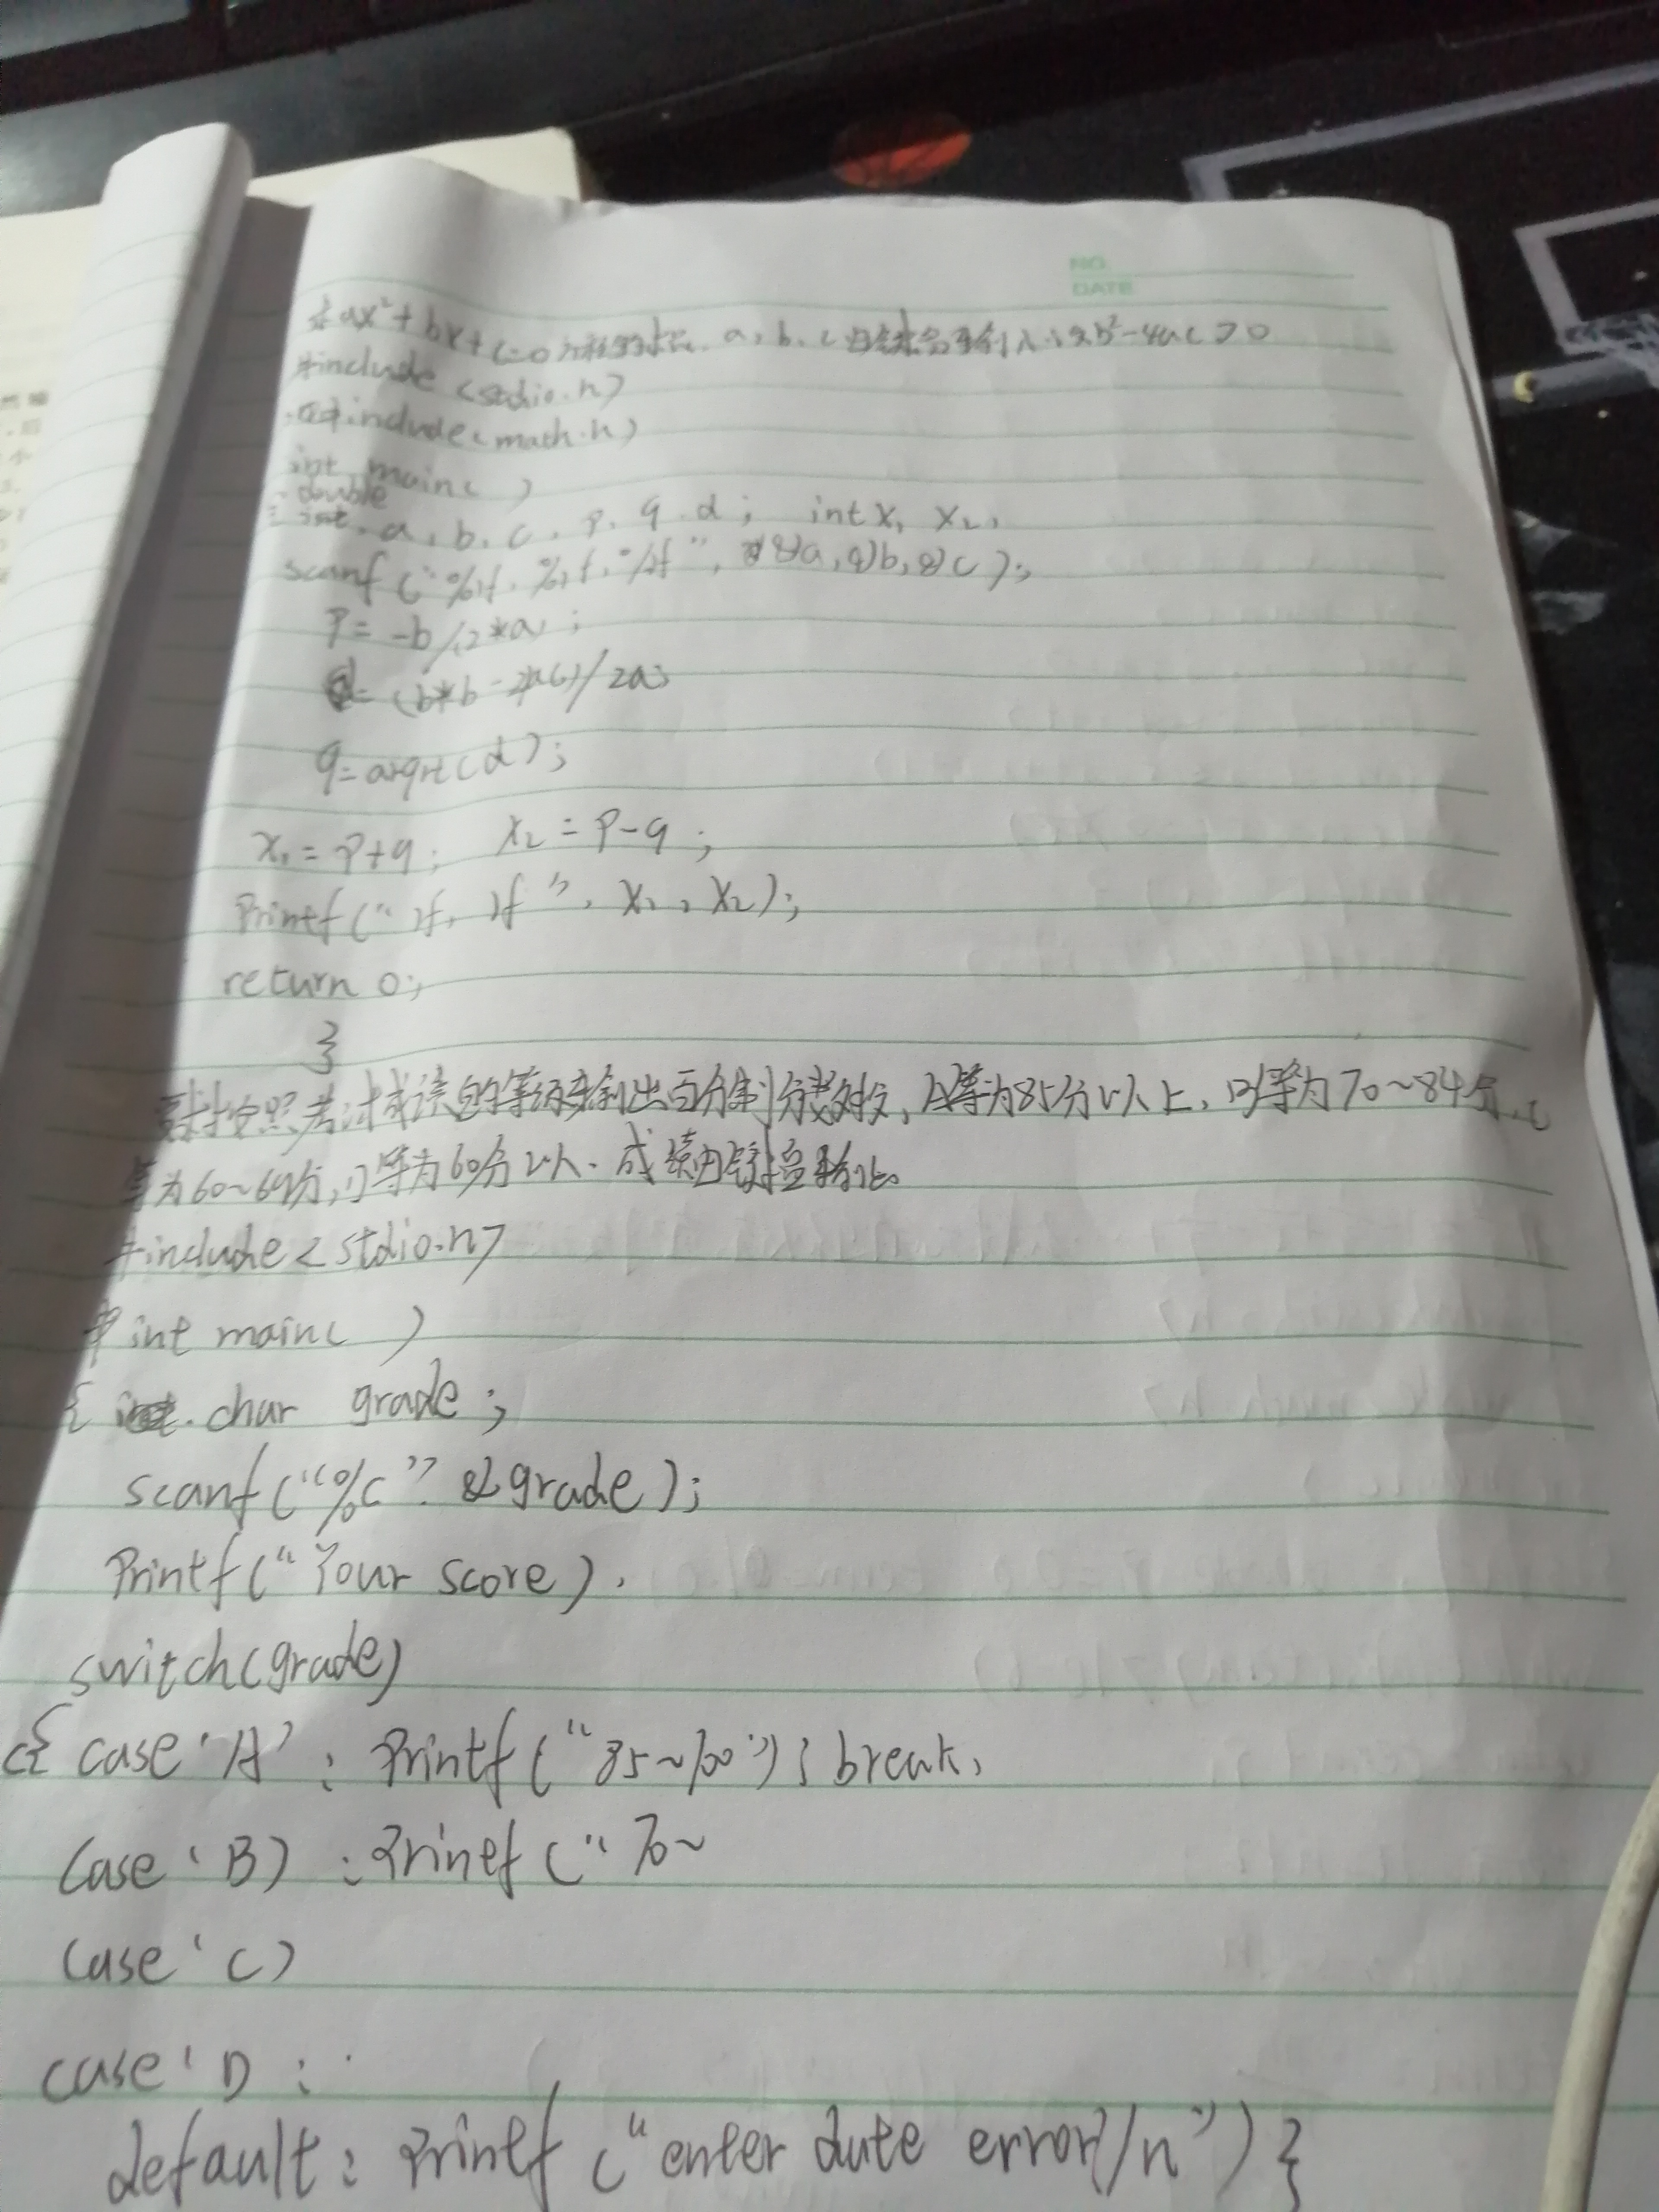 NO.
DATE
求ax²+bx+c=0方程的根. a, b, c由键盘输入 b²-4ac>0
#include <stdio.h>
#include<math.h>
int main( )
double
int a, b, c, p, q, d; int x₁ x₂,
scanf("%lf, %lf, %lf", &a, &b, &c);
p= -b/(2*a);
= (b*b - ac)/2a;
q= (d);
x₁=p+q; x₂=p-q;
Printf(" lf, lf ", x₁, x₂);
return 0;
}
要求按照考试成绩的等级来输出百分制分数, A等为85分以上, B等为70~84分, C
等为60~69分, D等为60分以 . 成绩由键盘输
#include<stdio.h>
int main( )
{ int. char grade;
scanf("%c" &grade);
Printf("Your score).
switch(grade)
{ case 'A' : Printf("85~100"); break,
case 'B) : Printf("70~
case 'C)
case 'D :
default: Printf("enter date error/n")}